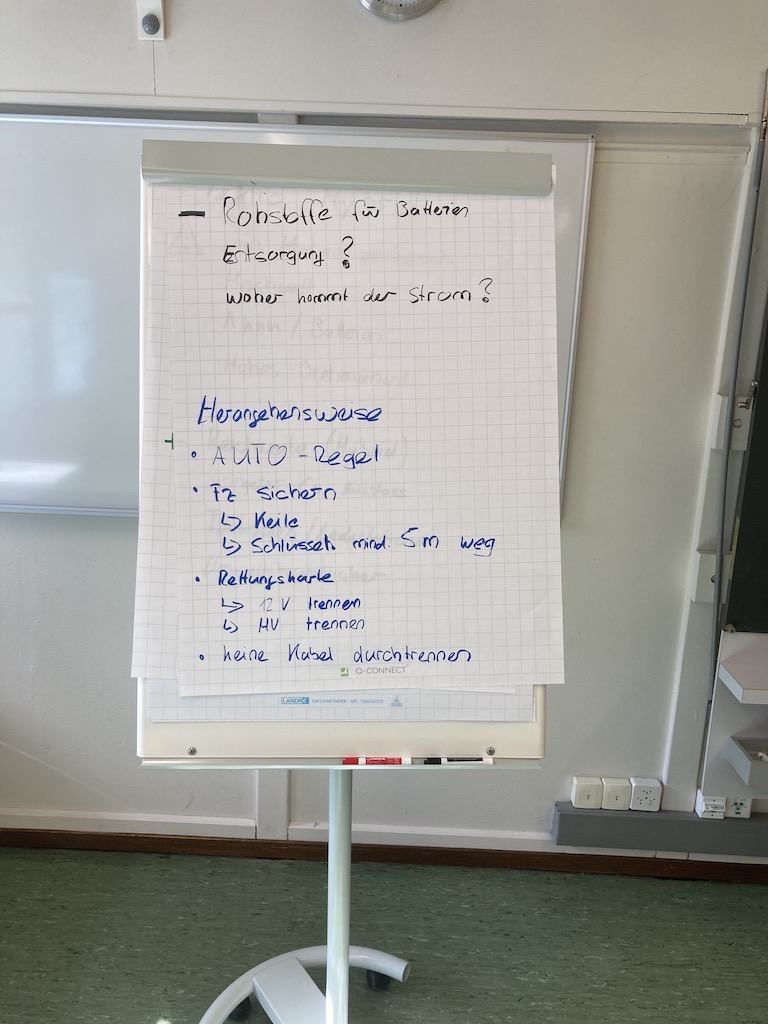 – Rohstoffe für Batterien
Entsorgung?
woher kommt der Strom?
Herangehensweise
• AUTO-Regel
• Fz sichern
↳ Keile
↳ Schlüssel mind. 5m weg
• Rettungskarte
↳ 12 V trennen
↳ HV trennen
• keine Kabel durchtrennen
Q-CONNECT
LANDRÉ